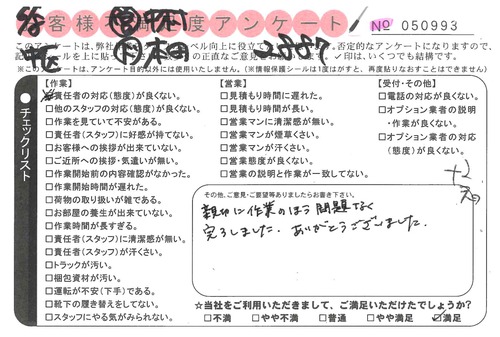 客様満足度アンケート
№ 050993
※このアンケートは、アンケート目的以外には使用いたしません。(※情報保護シールは1度はがすと、再度貼りなおすことはできません)
チェックリスト
【作業】
□責任者の対応(態度)が良くない。
□他のスタッフの対応(態度)が良くない。
□作業を見ていて不安がある。
□責任者(スタッフ)に好感が持てない。
□お客様への挨拶が出来ていない。
□ご近所への挨拶・気遣いが無い。
□作業開始前の内容確認がなかった。
□作業開始時間が遅れた。
□荷物の取り扱いが雑である。
□お部屋の養生が出来ていない。
□作業時間が長すぎる。
□責任者(スタッフ)に清潔感が無い。
□責任者(スタッフ)が汗くさい。
□トラックが汚い。
□梱包資材が汚い。
□運転が不安(下手)である。
□靴下の履き替えをしてない。
□スタッフにやる気がみられない。
【営業】
□見積もり時間に遅れた。
□見積もり時間が長い。
□営業マンに清潔感が無い。
□営業マンが煙草くさい。
□営業マンが汗くさい。
□営業態度が良くない。
□営業の説明と作業が一致してない。
【受付・その他】
□電話の対応が良くない。
□オプション業者の説明・作業が良くない。
□オプション業者の対応(態度)が良くない。
その他、ご意見・ご要望等ありましたらお書き下さい。
親切に作業のほう問題なく
完了しました。ありがとうございました。
☆当社をご利用いただきまして、ご満足いただけたでしょうか?
□不満 □やや不満 □普通 □やや満足 ☑満足